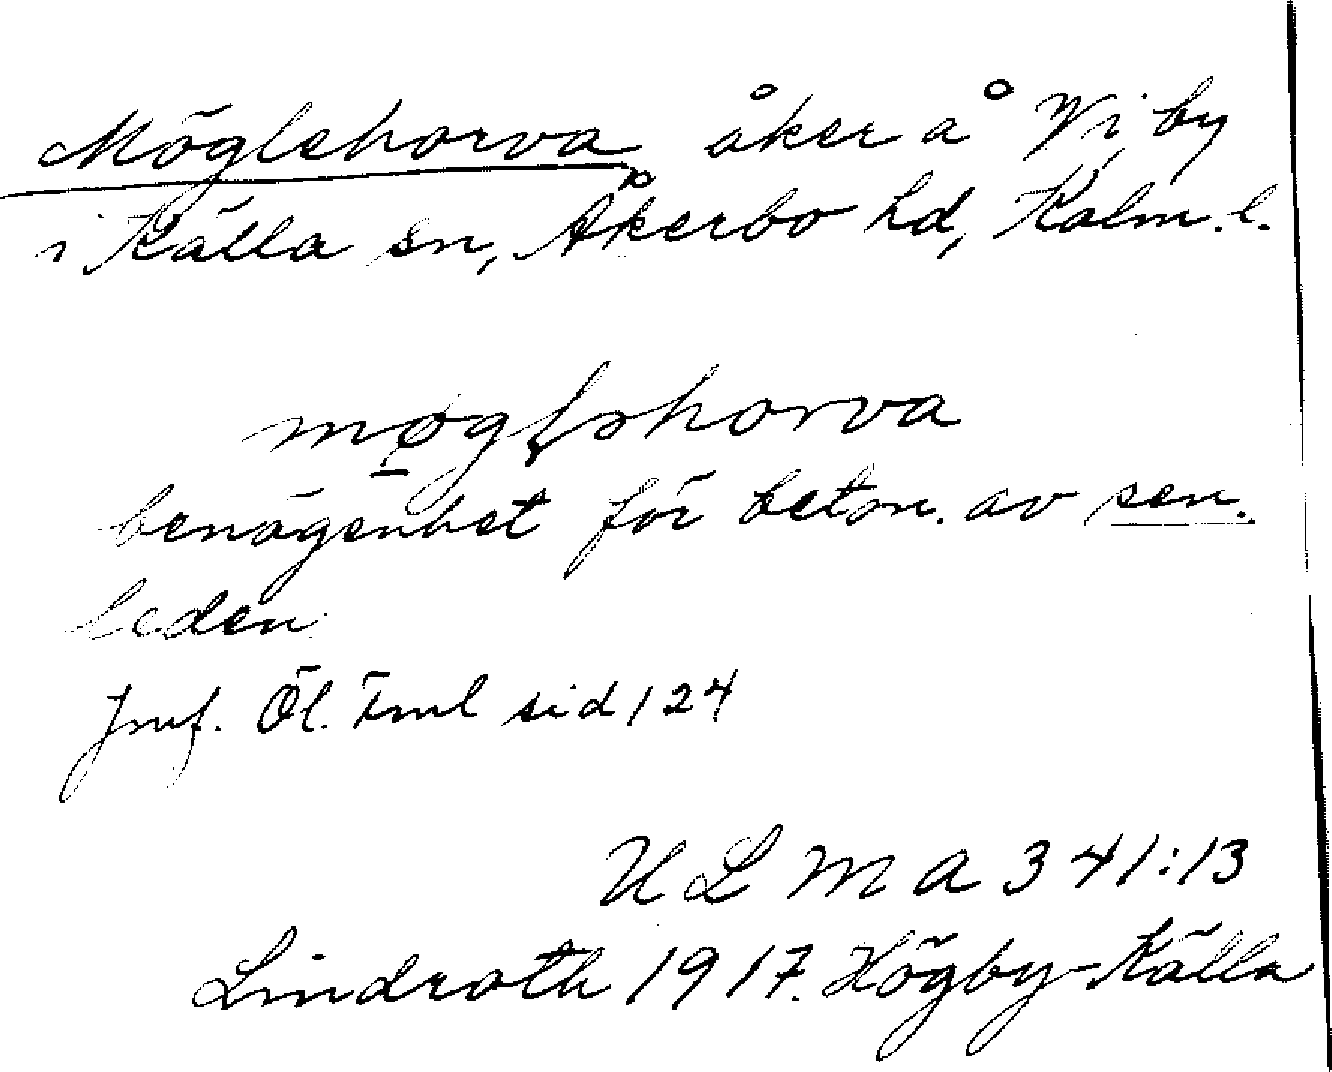 Möglehorva åker å Vi by
i Källa sn, Åkerbo hd, Kalm. l.
benägenhet för beton. av sen.
leden
Jmf. Öl. Fml sid 124
ULMA 341:13
Lindroth 1917. Högby-Källa